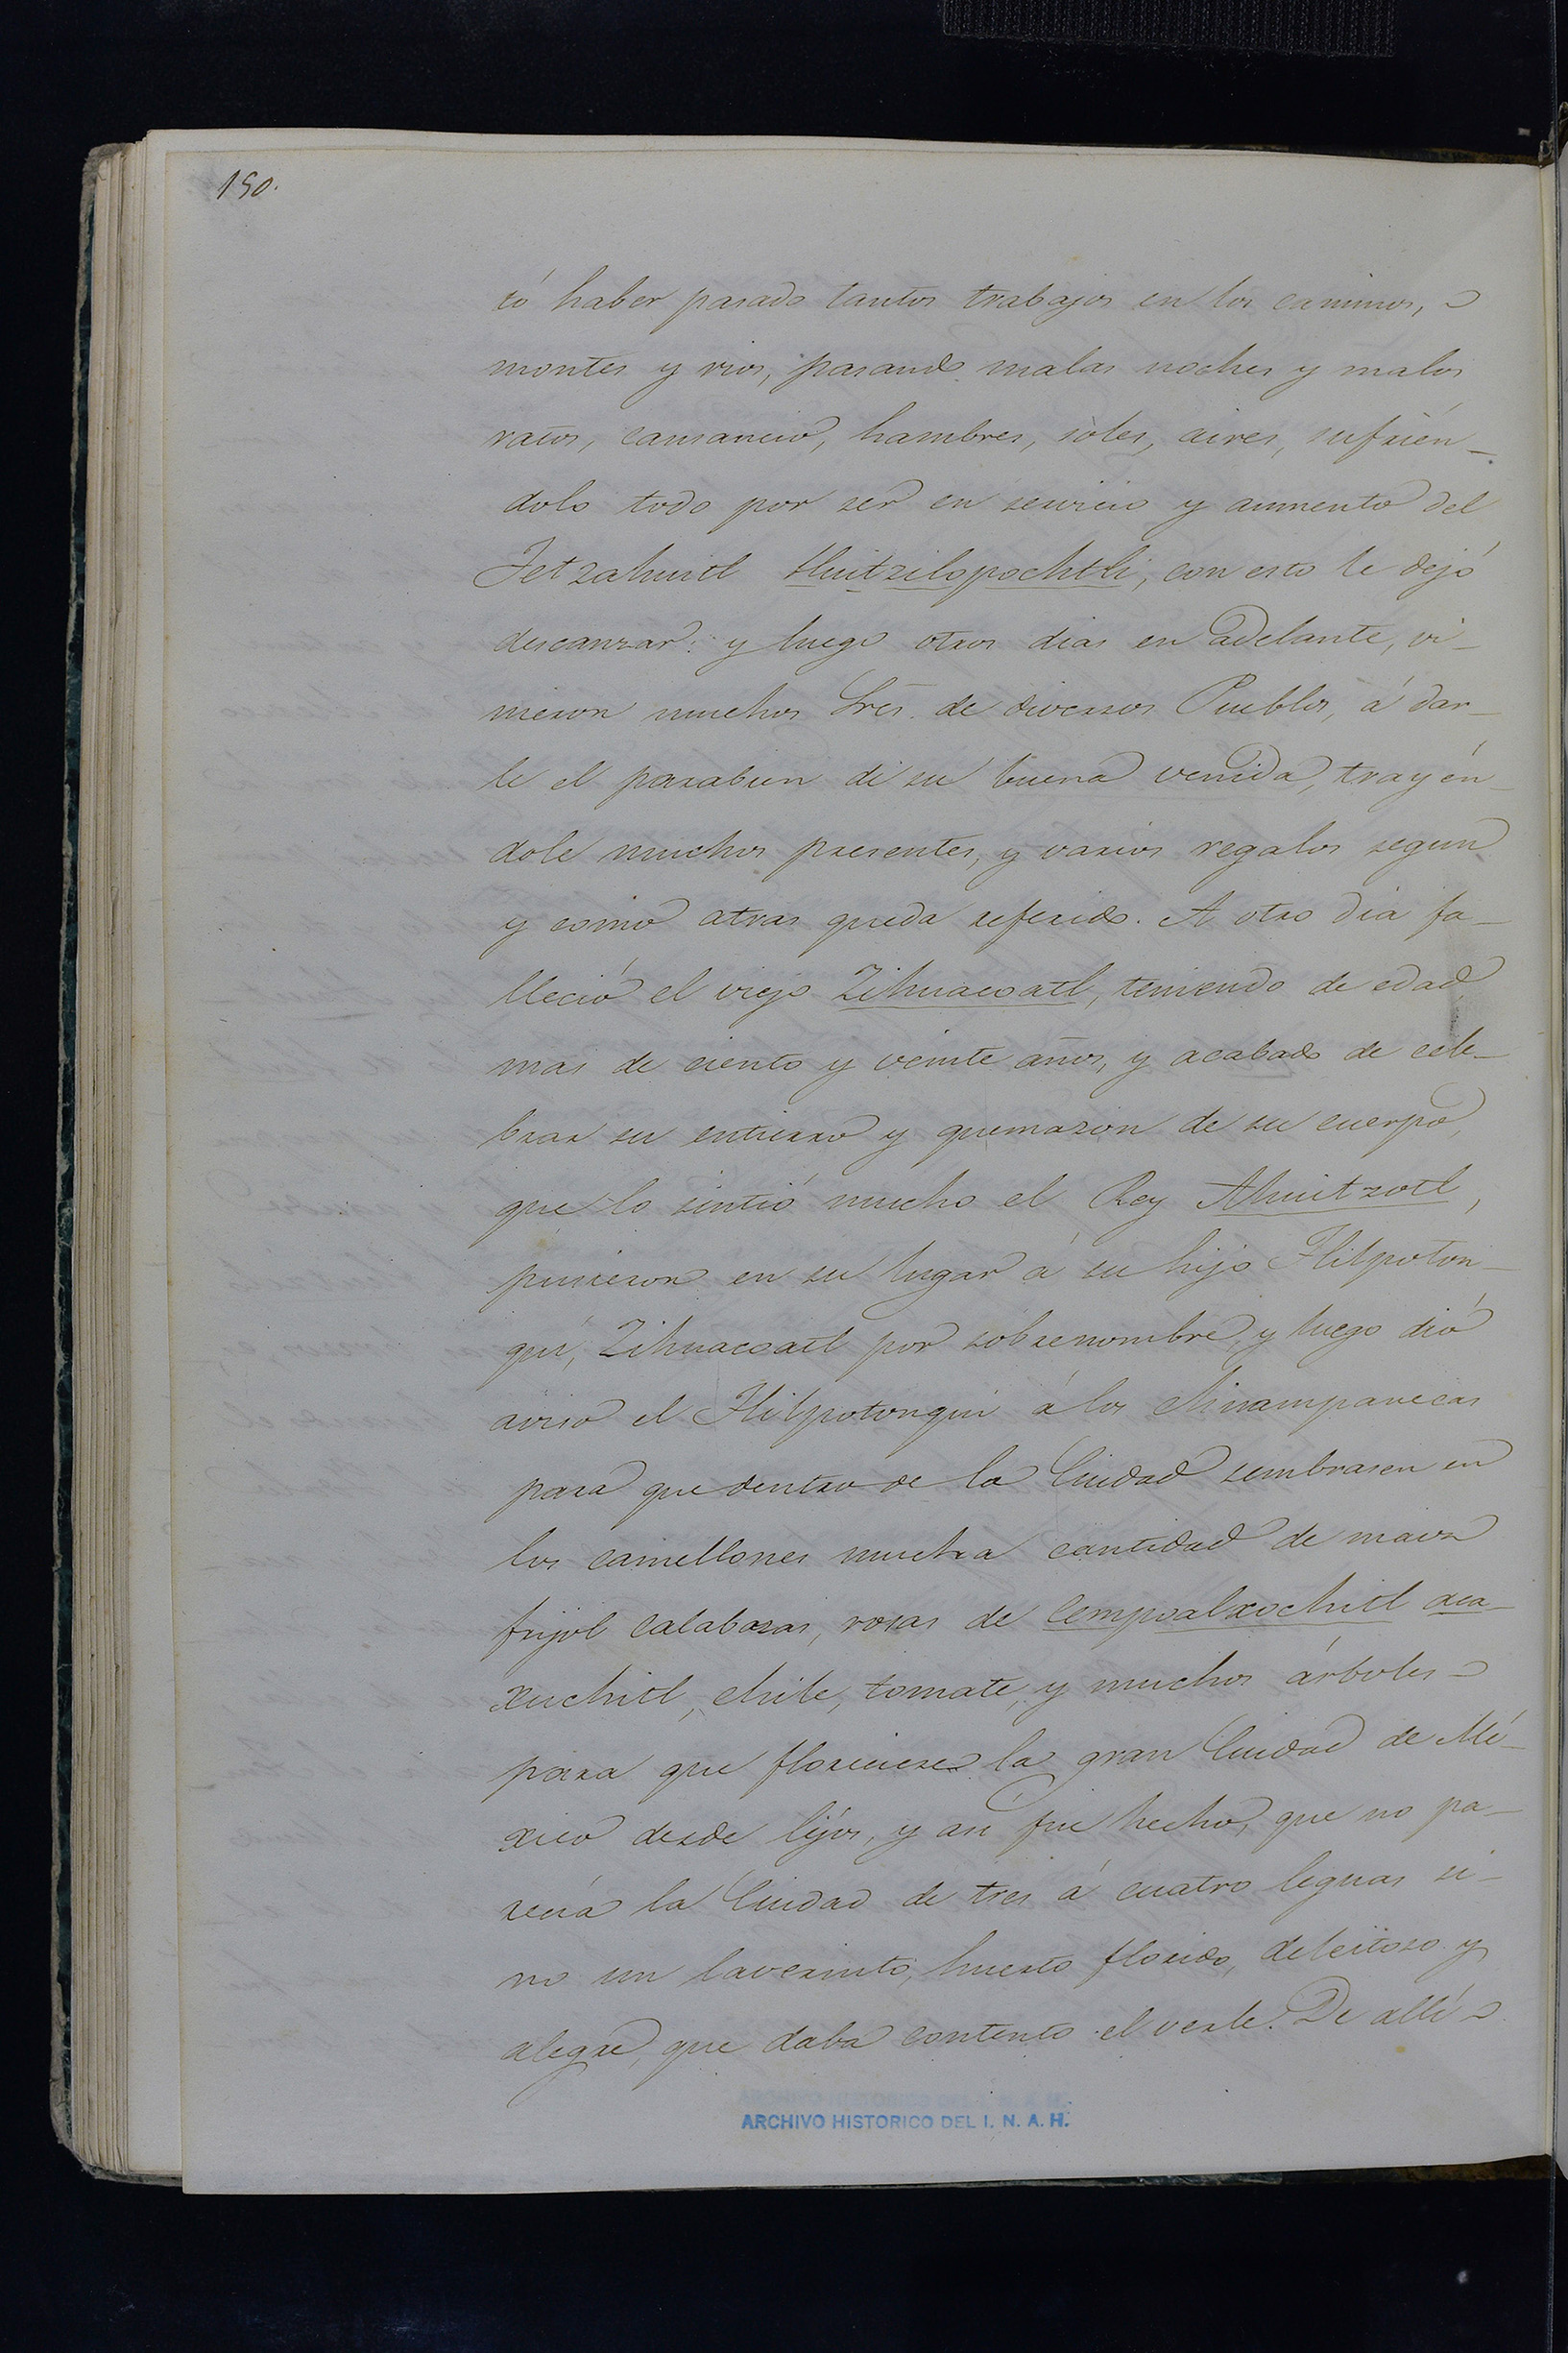 190.
tó haber pasado tantos trabajos en los caminos,
montes y rios, pasando malas noches y malos
ratos, cansancio, hambres, soles, aires, sufrién-
dolo todo por ser en servicio y aumento del
Tetzahuitl Huitzilopochtli, con esto le dejó
descanzar: y luego otros dias en adelante, vi-
nieron muchos Sres. de diversos Pueblos, á dar-
le el parabien de su buena venida, trayén-
dole muchos presentes, y varios regalos segun
y como atras queda referido. A otro dia fa-
lleció el viejo Zihuacoatl, teniendo de edad
mas de ciento y veinte años, y acabado de cele-
brar su entierro y quemazon de su cuerpo,
que lo sintió mucho el Rey Ahuitzotl,
pusieron en su lugar á su hijo Tlilpoton-
qui, Zihuacoatl por sobrenombre, y luego dió
aviso el Tlilpotonqui á los Chinampanecas
para que dentro de la Ciudad sembrasen en
los camellones mucha cantidad de maiz
frijol calabazas, rosas de Cempoalxochitl aca-
xuchitl, chile, tomate, y muchos árboles
para que floreciese la gran Ciudad de Mé-
xico desde lejos, y asi fue hecho, que no pa-
recia la Ciudad de tres á cuatro leguas si-
no un laverinto, huerto florido, deleitoso y
alegre, que daba contento el verle. De allí
ARCHIVO HISTORICO DEL I. N. A. H.